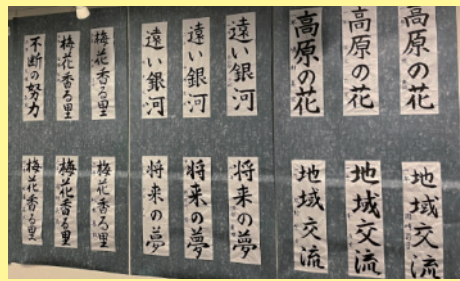 高原の花
高原の花
高原の花
遠い銀河
遠い銀河
遠い銀河
梅花香る里
梅花香る里
不断の努力
地域交流
地域交流
地域交流
将来の夢
将来の夢
将来の夢
梅花香る里
梅花香る里
梅花香る里